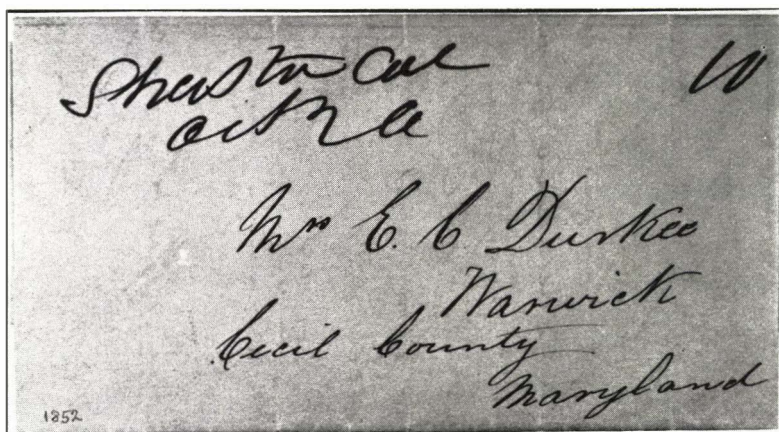 Shasta Cal
Oct
10
Mrs E. C. Durkee
Warwick
Cecil County
Maryland
1852